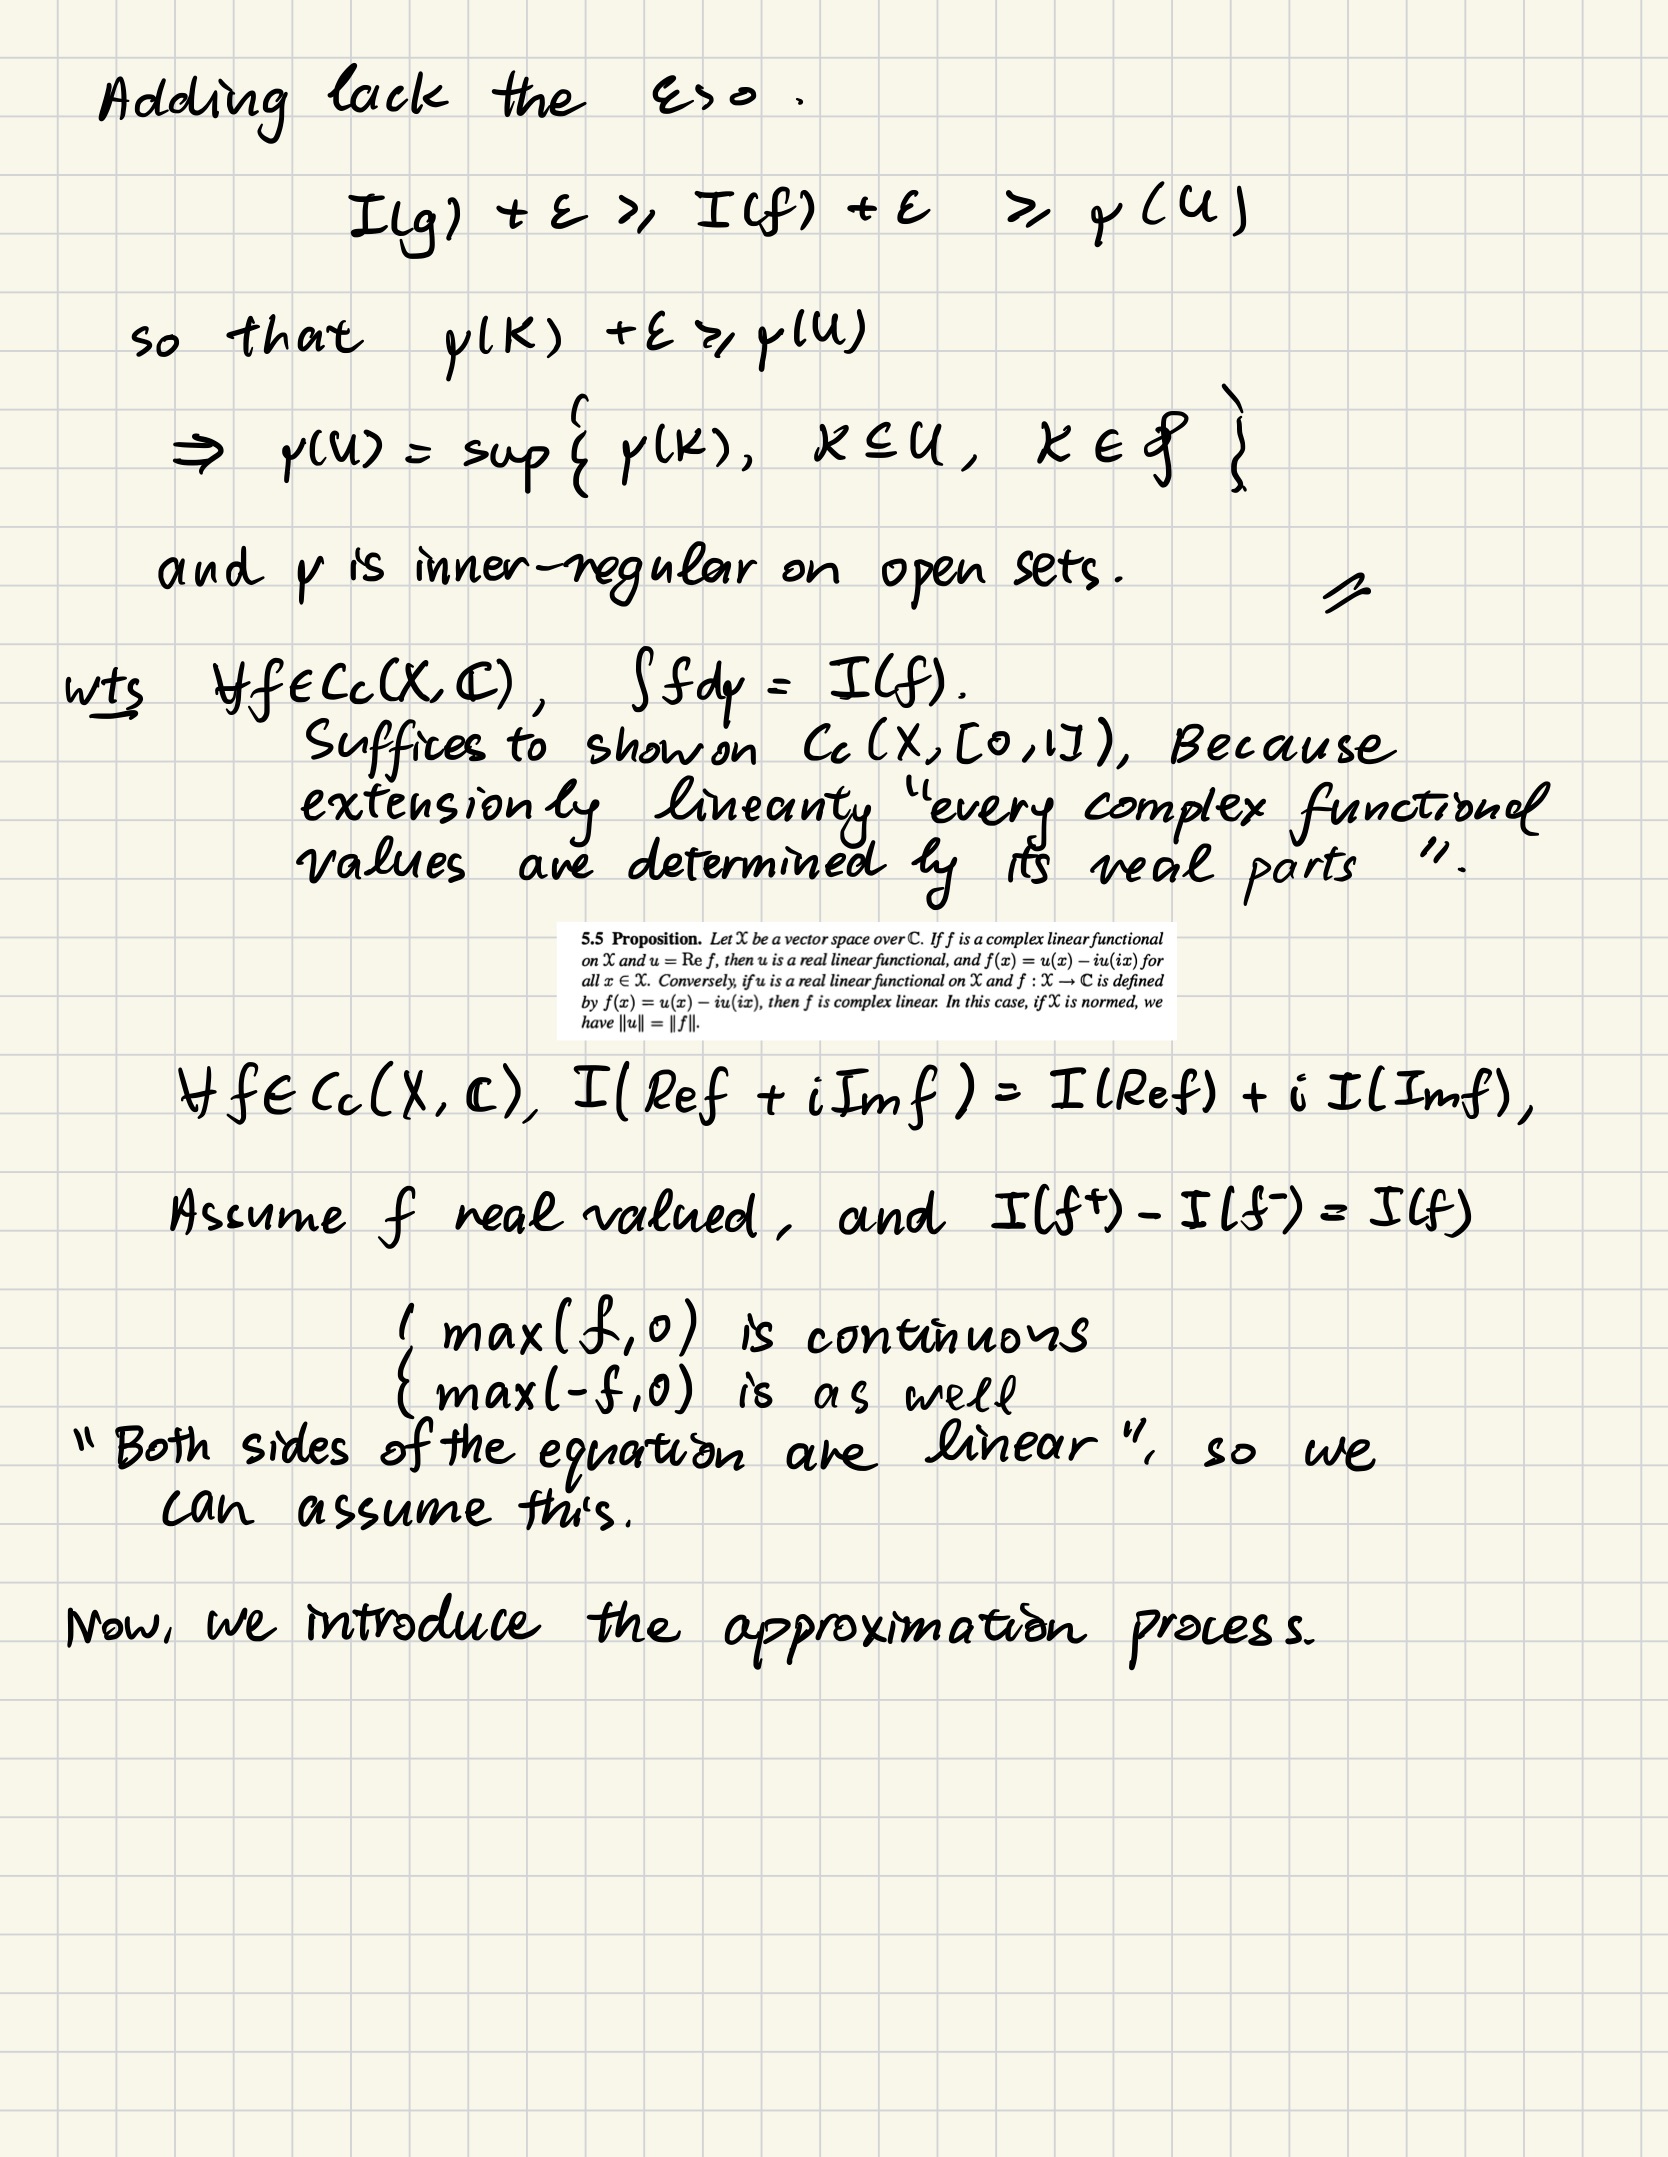 Adding back the ε>0.
I(g) + ε ≥ I(f) + ε ≥ μ(U)
so that μ(K) + ε ≥ μ(U)
⇒ μ(U) = sup { μ(K), K ⊆ U, K ∈ }
and μ is inner-regular on open sets. //
wts ∀f∈Cc(X,ℂ), ∫fdμ = I(f).
Suffices to show on Cc(X,[0,1]), Because
extension by linearity "every complex functional
values are determined by its real parts".
5.5 Proposition. Let 𝒳 be a vector space over ℂ. If f is a complex linear functional
on 𝒳 and u = Re f, then u is a real linear functional, and f(x) = u(x) − iu(ix) for
all x ∈ 𝒳. Conversely, if u is a real linear functional on 𝒳 and f : 𝒳 → ℂ is defined
by f(x) = u(x) − iu(ix), then f is complex linear. In this case, if 𝒳 is normed, we
have ‖u‖ = ‖f‖.
∀f∈Cc(X,ℂ), I(Ref + iImf) = I(Ref) + i I(Imf),
Assume f real valued, and I(f⁺) - I(f⁻) = I(f)
{ max(f,0) is continuous
max(-f,0) is as well
"Both sides of the equation are linear", so we
can assume this.
Now, we introduce the approximation process.